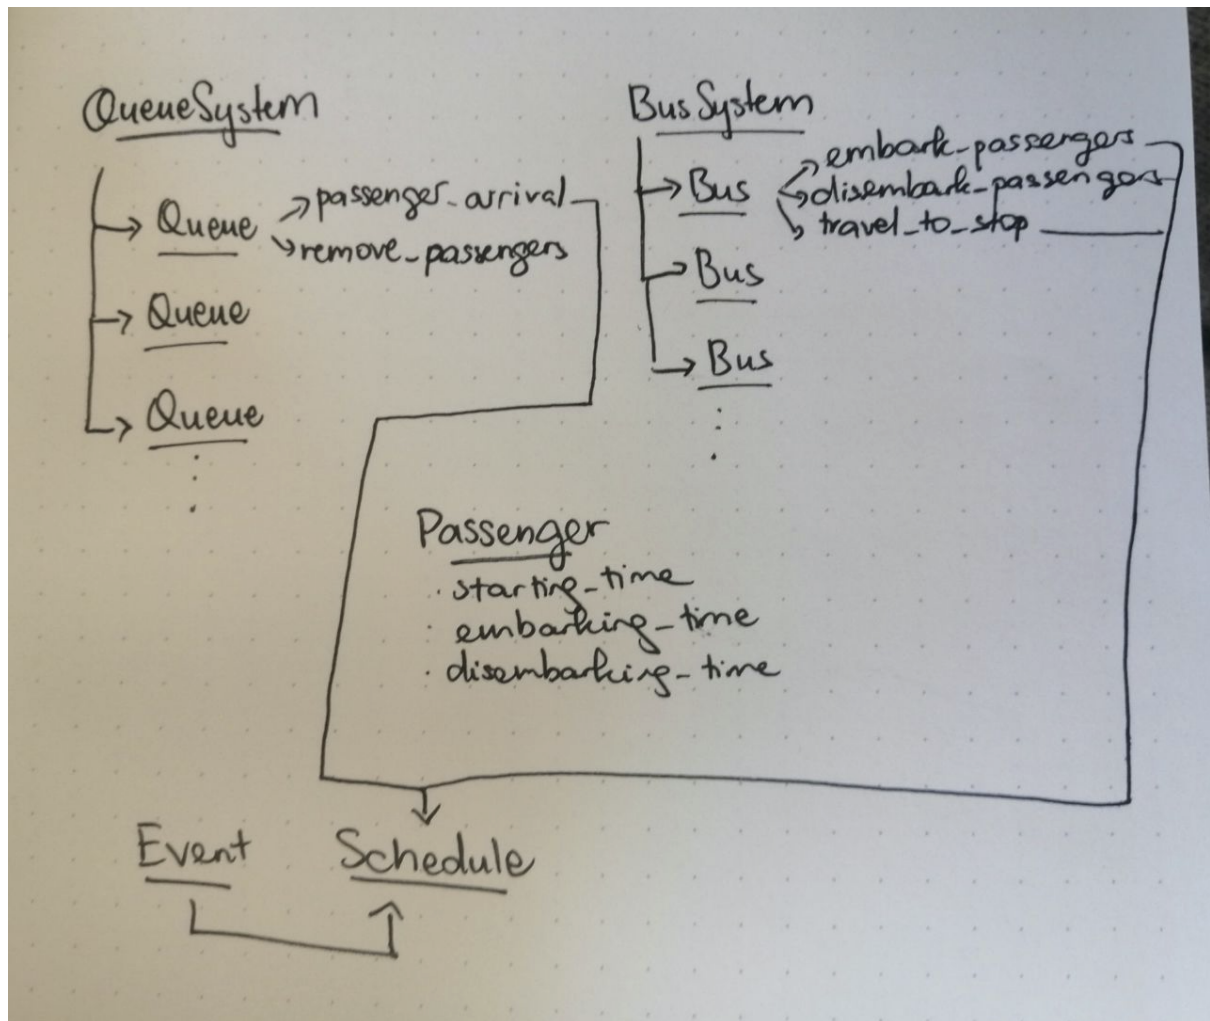 QueueSystem
Queue
passenger_arrival
remove_passengers
Queue
Queue
Bus System
Bus
embark_passengers
disembark_passengers
travel_to_stop
Bus
Bus
Passenger
· starting_time
· embarking_time
· disembarking_time
Event
Schedule